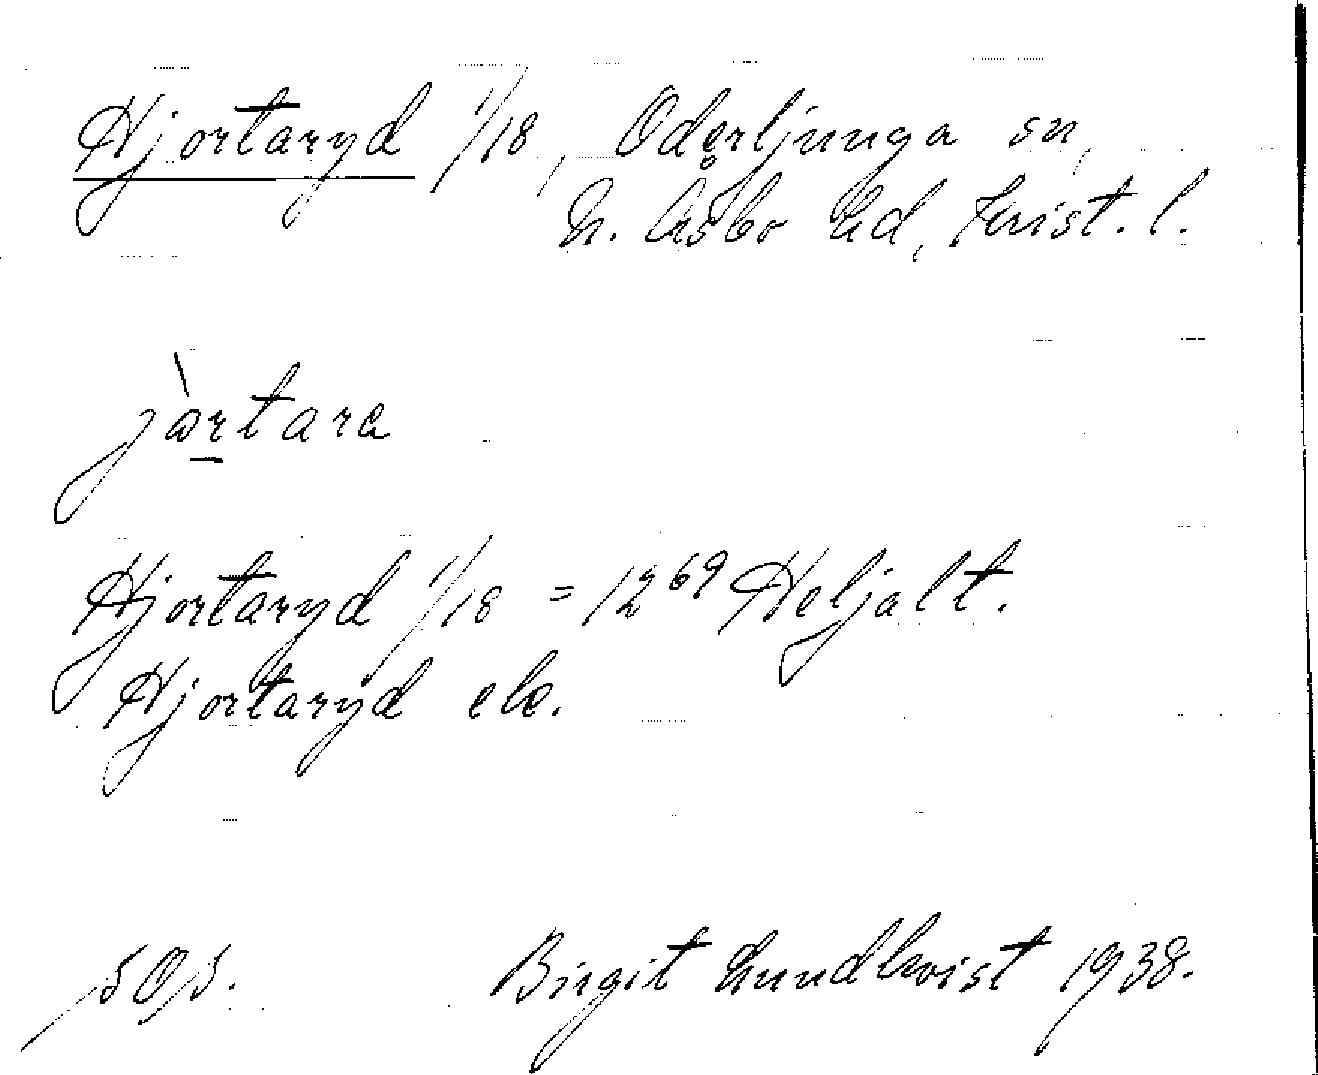 Hjortaryd 1/18, Oderljunga sn,
N. Åsbo hd, Krist. l.
jàrtara
Hjortaryd 1/18 = 12⁶⁹ Heljalt.
Hjortaryd
Birgit Lundkvist 1938.